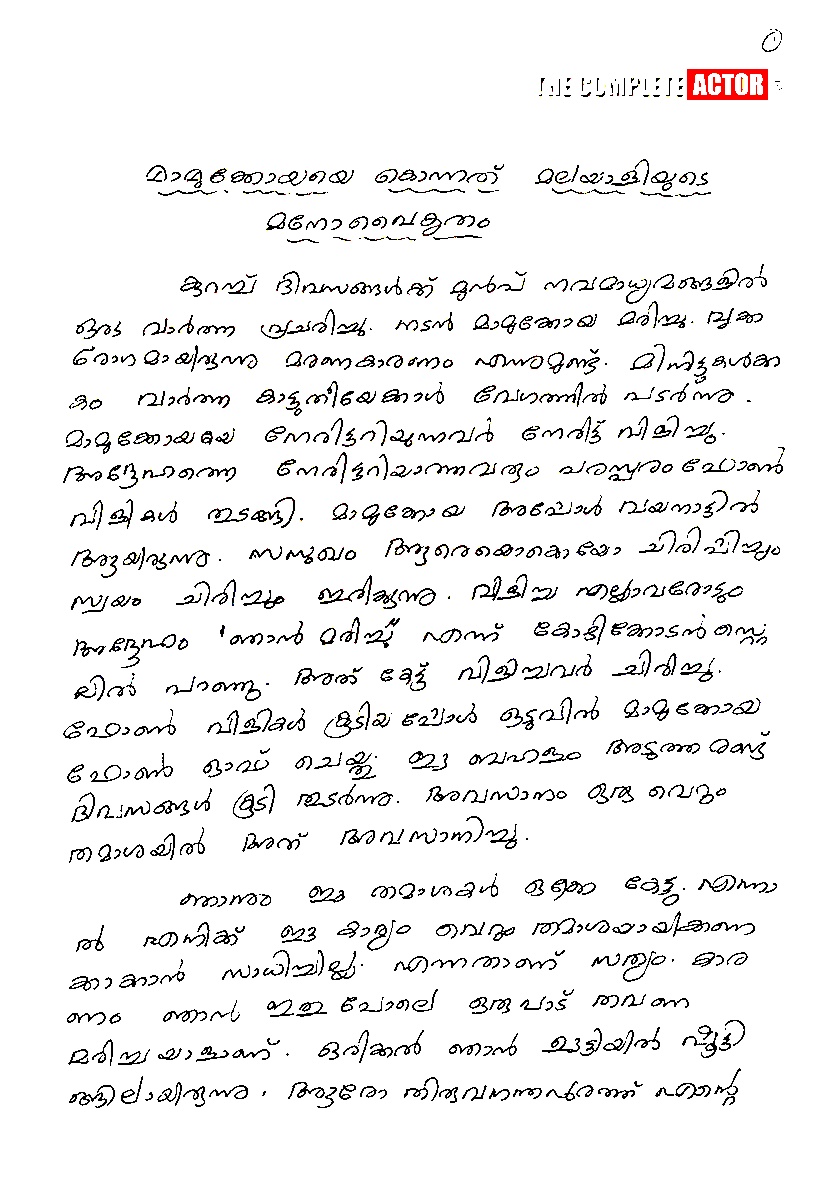 ①
THE COMPLETE ACTOR
മാമുക്കോയയെ കൊന്നത് മലയാളിയുടെ
മനോവൈകൃതം
കുറച്ച് ദിവസങ്ങൾക്ക് മുൻപ് നവമാധ്യമങ്ങളിൽ
ഒരു വാർത്ത പ്രചരിച്ചു. നടൻ മാമുക്കോയ മരിച്ചു. വൃക്ക
രോഗമായിരുന്നു മരണകാരണം എന്നുമുണ്ട്. മിനിട്ടുകൾക്ക
കം വാർത്ത കാട്ടുതീയേക്കാൾ വേഗത്തിൽ പടർന്നു.
മാമുക്കോയയെ നേരിട്ടറിയുന്നവർ നേരിട്ട് വിളിച്ചു.
അദ്ദേഹത്തെ നേരിട്ടറിയാത്തവരും പരസ്പരം ഫോൺ
വിളികൾ തുടങ്ങി. മാമുക്കോയ അപ്പോൾ വയനാട്ടിൽ
ആയിരുന്നു. സസുഖം ആരെയൊക്കെയോ ചിരിപ്പിച്ചും
സ്വയം ചിരിച്ചും ഇരിക്കുന്നു. വിളിച്ച എല്ലാവരോടും
അദ്ദേഹം 'ഞാൻ മരിച്ചു' എന്ന് കോഴിക്കോടൻ സ്റ്റൈ
ലിൽ പറഞ്ഞു. അത് കേട്ട് വിളിച്ചവർ ചിരിച്ചു.
ഫോൺ വിളികൾ കൂടിയപ്പോൾ ഒടുവിൽ മാമുക്കോയ
ഫോൺ ഓഫ് ചെയ്തു. ഈ ബഹളം അടുത്ത രണ്ട്
ദിവസങ്ങൾ കൂടി തുടർന്നു. അവസാനം ഒരു വെറും
തമാശയിൽ അത് അവസാനിച്ചു.
ഞാനും ഈ തമാശകൾ ഒക്കെ കേട്ടു. എന്നാ
ൽ എനിക്ക് ഈ കാര്യം വെറും തമാശയായിക്കണ
ക്കാക്കാൻ സാധിച്ചില്ല. എന്നതാണ് സത്യം. കാര
ണം ഞാൻ ഇതു പോലെ ഒരുപാട് തവണ
മരിച്ചയാളാണ്. ഒരിക്കൽ ഞാൻ ഊട്ടിയിൽ ഷൂട്ടി
ങ്ങിലായിരുന്നു. ആരോ തിരുവനന്തപുരത്ത് എന്റെ